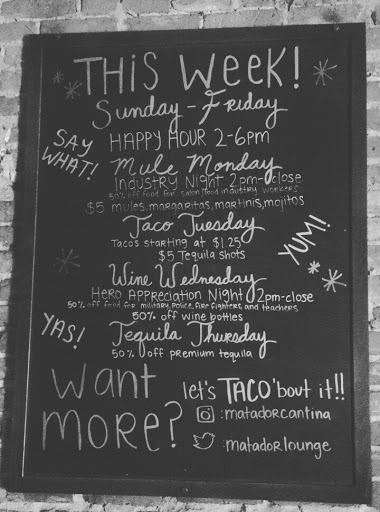 THIS WEEK!
Sunday - Friday
SAY WHAT!
HAPPY HOUR 2-6PM
Mule Monday
INDUSTRY NIGHT 2pm-close
50% off food for salon/food industry workers
$5 mules, margaritas, martinis, mojitos
Taco Tuesday
Tacos starting at $1.25
$5 Tequila shots
YUM!
Wine Wednesday
Hero Appreciation Night 2pm-close
50% off food for military, police, fire fighters and teachers
50% off wine bottles
YAS!
Tequila Thursday
50% off premium tequila
Want more?
let's TACO 'bout it!!
:matadorcantina
:matadorlounge